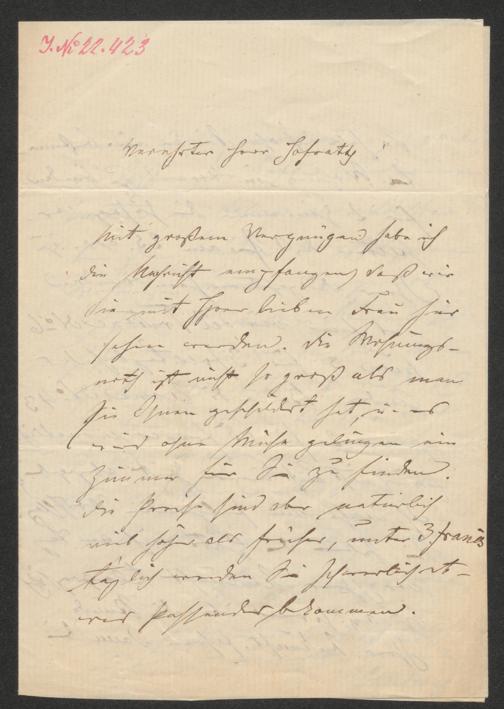 J. No 22.423
Verehrter Herr Hofrath!
Mit großem Vergnügen habe ich
die Nachricht empfangen, daß wir
Sie mit Ihrer lieben Frau hier
sehen werden. Die Wohnungs-
noth ist nicht so groß als man
sie Ihnen geschildert hat, u. es
wird ohne Mühe gelingen ein
Zimmer für Sie zu finden.
Die Preise sind aber natürlich
viel höher als früher, unter 3 francs
täglich werden Sie schwerlich et-
was Passendes bekommen.